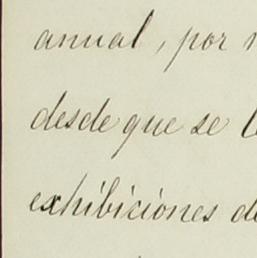 anual, por
desde que se
exhibiciones de